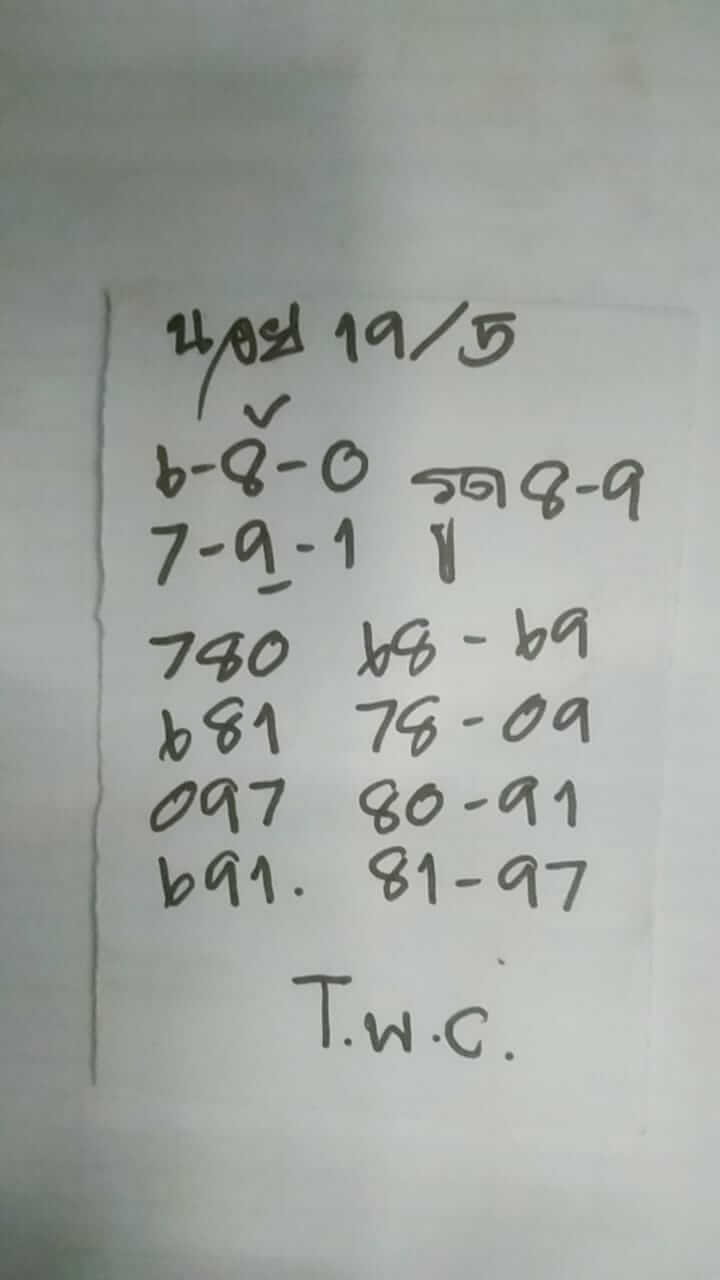 นอย 19/5
6-8-0
7-9-1
รูด 8-9
780 68-69
681 78-09
097 80-91
691. 81-97
T.W.C.